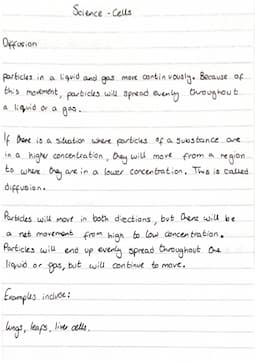 Science - Cells
Diffusion
particles in a liquid and gas move continuously. Because of
this movement, particles will spread evenly throughout
a liquid or a gas.
If there is a situation where particles of a substance are
in a higher concentration, they will move from a region
to where they are in a lower concentration. This is called
diffusion.
Particles will move in both directions, but there will be
a net movement from high to low concentration.
Particles will end up evenly spread throughout the
liquid or gas, but will continue to move.
Examples include:
lungs, leafs, liver cells.